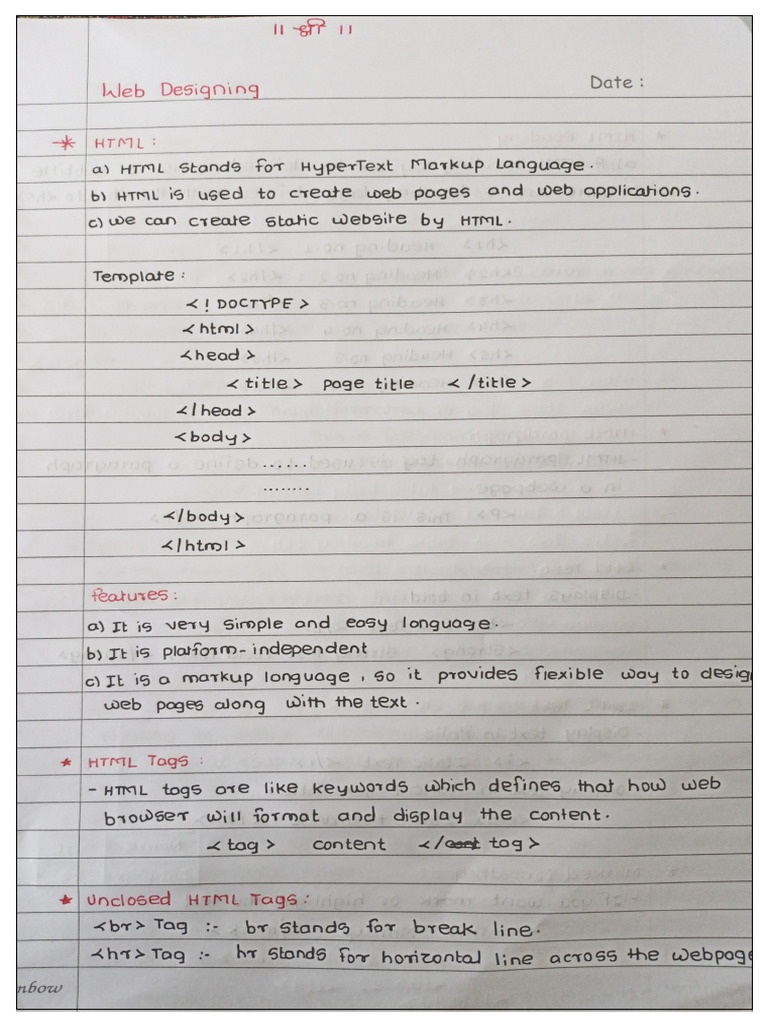 ॥ श्री ॥
Web Designing
Date :
* HTML :
a) HTML stands for HyperText Markup Language.
b) HTML is used to create web pages and web applications.
c) we can create static website by HTML.
Template :
<! DOCTYPE>
<html>
<head>
<title> page title </title>
</head>
<body>
......
........
</body>
</html>
features :
a) It is very simple and easy language.
b) It is platform-independent
c) It is a markup language, so it provides flexible way to desig
web pages along with the text.
* HTML Tags :
- HTML tags are like keywords which defines that how web
browser will format and display the content.
<tag> content </ tag>
* Unclosed HTML Tags :
<br> Tag :- br stands for break line.
<hr> Tag :- hr stands for horizontal line across the webpage
nbow